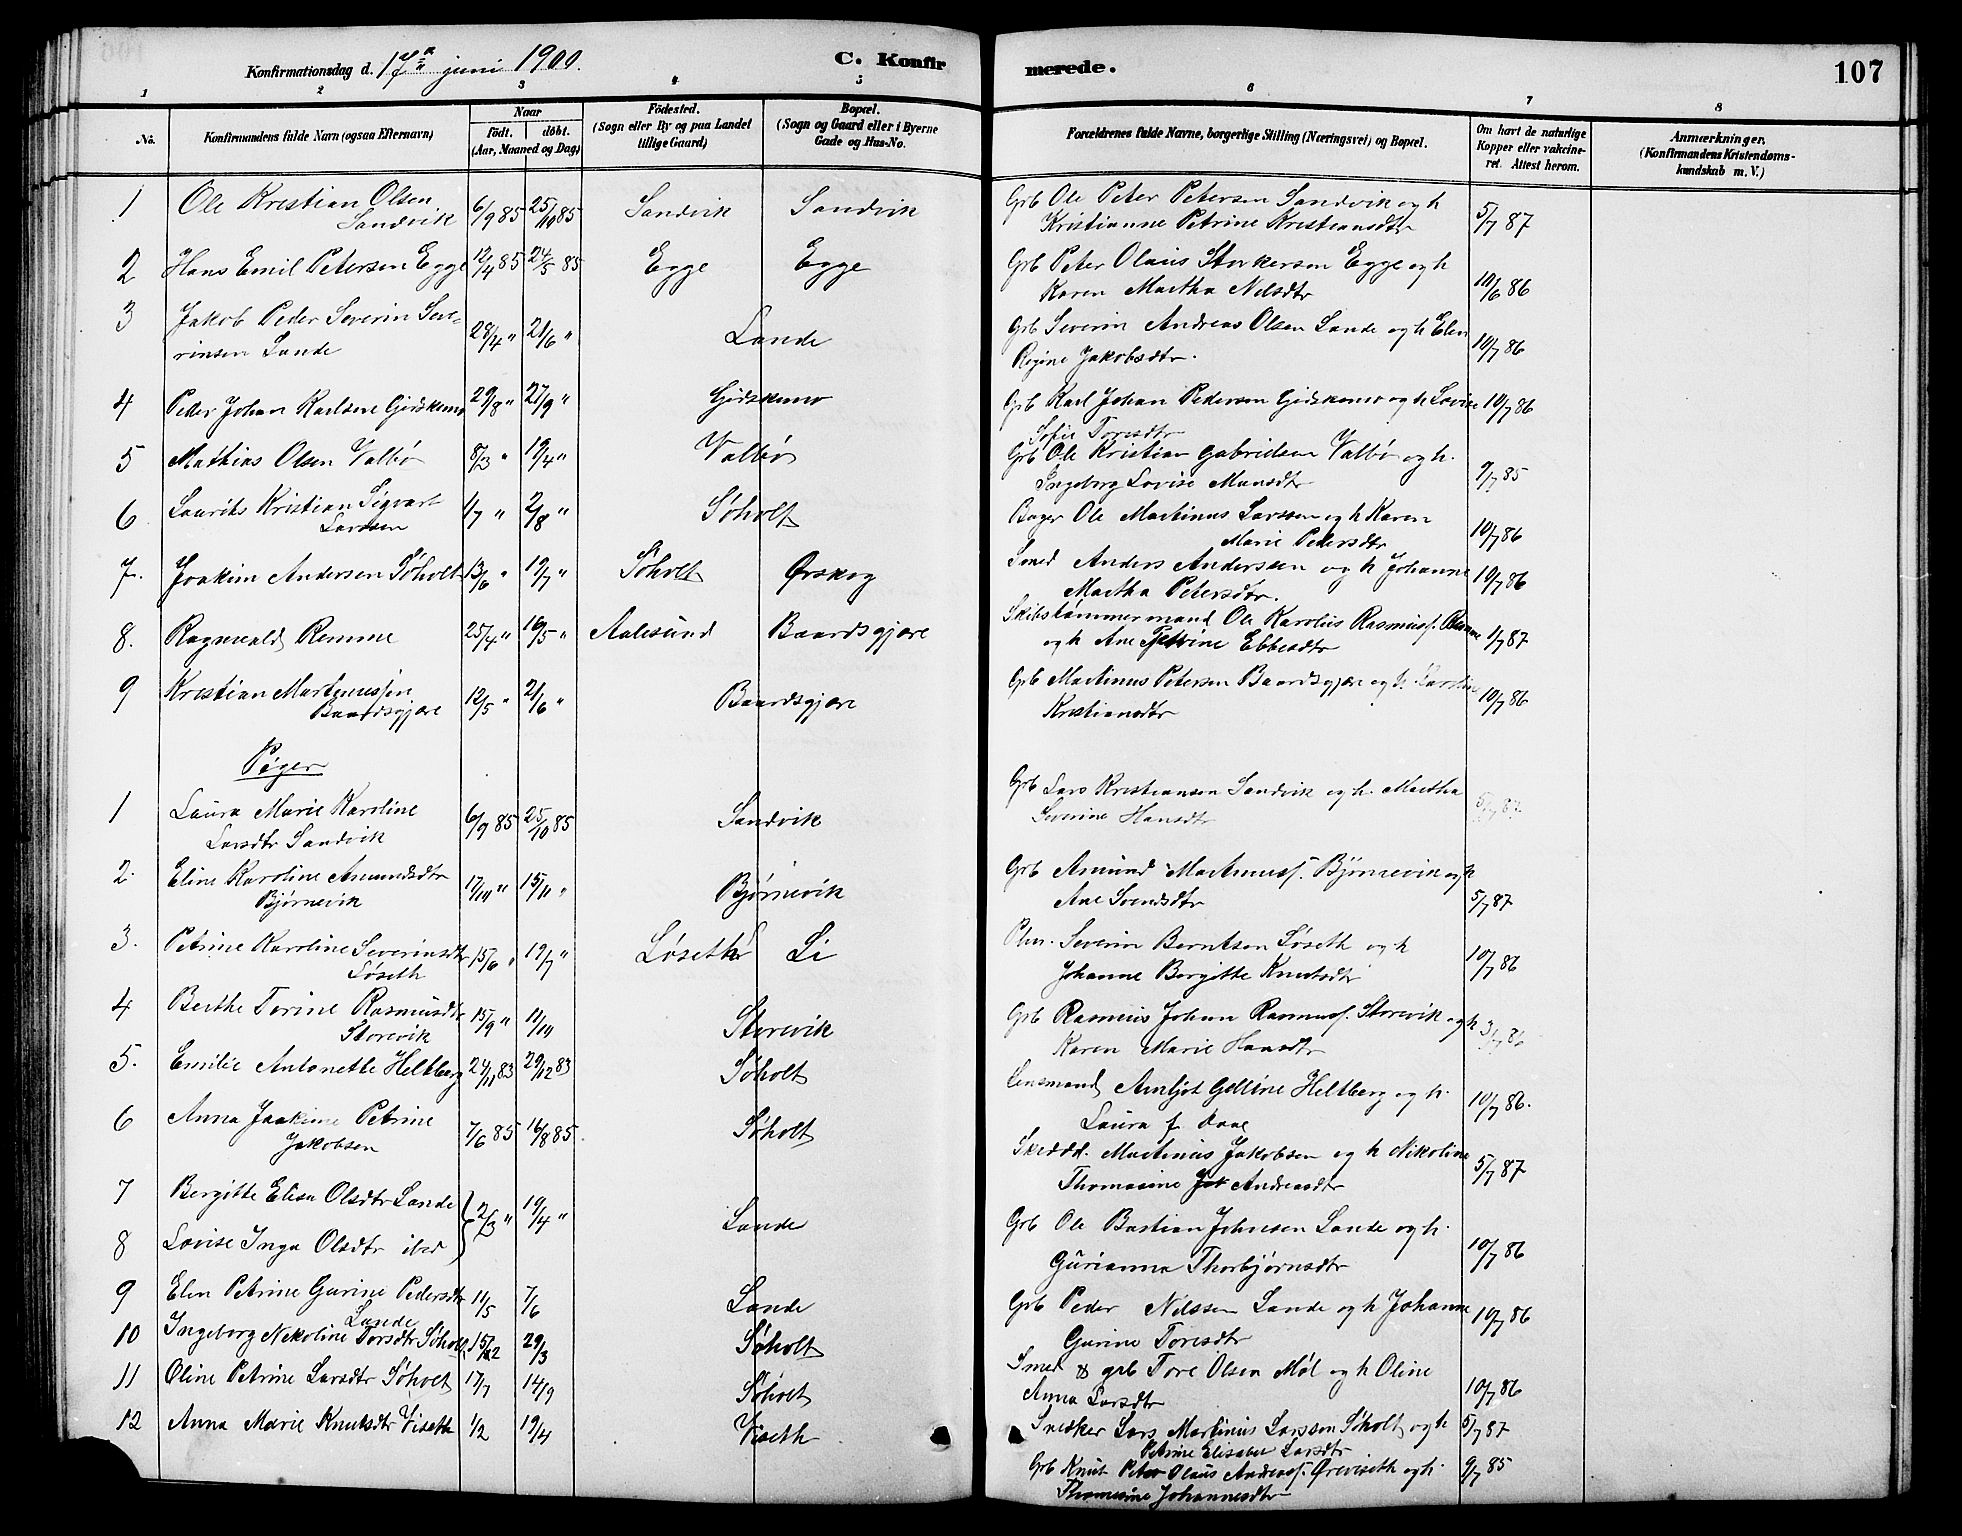 Konfirmationsdag d. 17de juni 1900. C. Konfirmerede. 107
1 2 3 4 5 6 7 8
No.
Konfirmandens fulde Navn (ogsaa Efternavn)
Naar
födt. döbt.
(Aar, Maaned og Dag)
Födested.
(Sogn eller By og paa Landet
tillige Gaard)
Bopæl.
(Sogn og Gaard eller i Byerne
Gade og Hus-No.
Forældrenes fulde Navne, borgerlige Stilling (Næringsvei) og Bopæl.
Om havt de naturlige
Kopper eller vakcine-
ret. Attest herom.
Anmærkninger.
(Konfirmandens Kristendoms-
kundskab m. V.)
1 Ole Kristian Olsen 6/9 85 25/10 85 Sandvik Sandvik Grb Ole Peter Petersen Sandvik og h 5/7 87
Sandvik Kristianne Petrine Kristiansdtr
2 Hans Emil Petersen Egge 12/4 85 24/5 85 Egge Egge Grb Peter Olaus Storkersen Egge og h
Karen Martha Nilsdtr 10/6 86
3 Jakob Peder Severin Seve- 28/4 " 21/6 " Lande Grb Severin Andreas Olsen Lande og h Elen
rinsen Lande Regine Jakobsdtr. 10/7 86
4 Peder Johan Karlsen Gjidskemo 29/8 " 27/9 " Gjidskemo Grb Karl Johan Pedersen Gjidskemo og h Lovise 10/7 86
Sofie Toresdtr
5 Mathias Olsen Valbø 8/3 " 19/4 " Valbø Grb Ole Kristian Gabrielsen Valbø og h.
Ingeborg Lovise Mansdtr 9/7 85
6 Laurits Kristian Sigvart 1/7 " 2/8 " Søholt Bager Ole Martinus Larssen og h Karen
Larssen Marie Pedersdtr 10/7 86
7. Joakim Andersen Søholt 13/6 " 19/7 " Søholt Ørskog Smed Anders Anderssen og h Johanne 10/7 86
Martha Petersdtr.
8. Ragnvald Remme 25/4 " 16/5 " Aalesund Baardsgjære Skibstømmermand Ole Karolus Rasmusf. Remme
og h Ane Petrine Ebbesdtr 1/7 87
9 Kristian Martinussen 12/5 " 21/6 " Baardsgjære Grb Martinus Petersen Baardsgjære og h. Karoline
Baardsgjære Kristiansdtr 10/7 86
Piger
1 Laura Marie Karoline 6/9 85 25/10 85 Sandvik Grb Lars Kristiansen Sandvik og h. Martha
Larsdtr Sandvik Severine Hansdtr 5/7 87.
2. Eline Karoline Amundsdtr 17/10 " 15/11 " Bjørnevik Grb Amund Martinusf. Bjørnevik og h
Bjørnevik Ane Svendsdtr 5/7 87
3. Petrine Karoline Severinsdtr 15/6 " 19/7 " Løseth Li Severin Berntsen Løseth og h
Løseth Johanne Bergitte Knutsdtr 10/7 86
4 Berthe Torine Rasmusdtr 15/9 " 11/10 Storevik Grb Rasmus Johan Rasmusf. Storevik og h
Storevik Karen Marie Hansdtr 3/7 86
5. Emilie Antonette Heltberg 24/11 83 29/12 83 Søholt Lensmand Arnljot Gelline Heltberg og h.
Laura f. Daae 10/7 86.
6 Anna Joakime Petrine 7/6 85 16/8 85 Søholt Skrædd. Martinus Jakobsen og h Nikoline
Jakobsen Thomasine Andreasdtr 5/7 87
7 Bergitte Elisa Olsdtr Lande 2/3 " 19/4 " Lande Grb Ole Bastian Johnsen Lande og h.
8 Lovise Inga Olsdtr ibid Gurianna Thorbjørnsdtr 10/7 86
9 Elen Petrine Gurine Pedersdtr 11/5 7/6 Lande Grb Peder Nilssen Lande og h Johanne 10/7 86
Lande Gurine Toresdtr
10 Ingeborg Nikoline Torsdtr Søholt 15/2 29/3 Søholt Smed & grb Tore Olsen Møl og h Oline
Anna Larsdtr 10/7 86
11 Oline Petrine Larsdtr Søholt 17/7 14/9 Søholt Snedker Lars Martinus Larssen Søholt og h 5/7 87
Petrine Elisabet Larsdtr
12 Anna Marie Knutsdtr Viseth 1/2 19/4 Viseth Grb Knut Peter Olaus Andreasf. Øreviseth og h. 9/7 85
Thomasine Johannesdtr